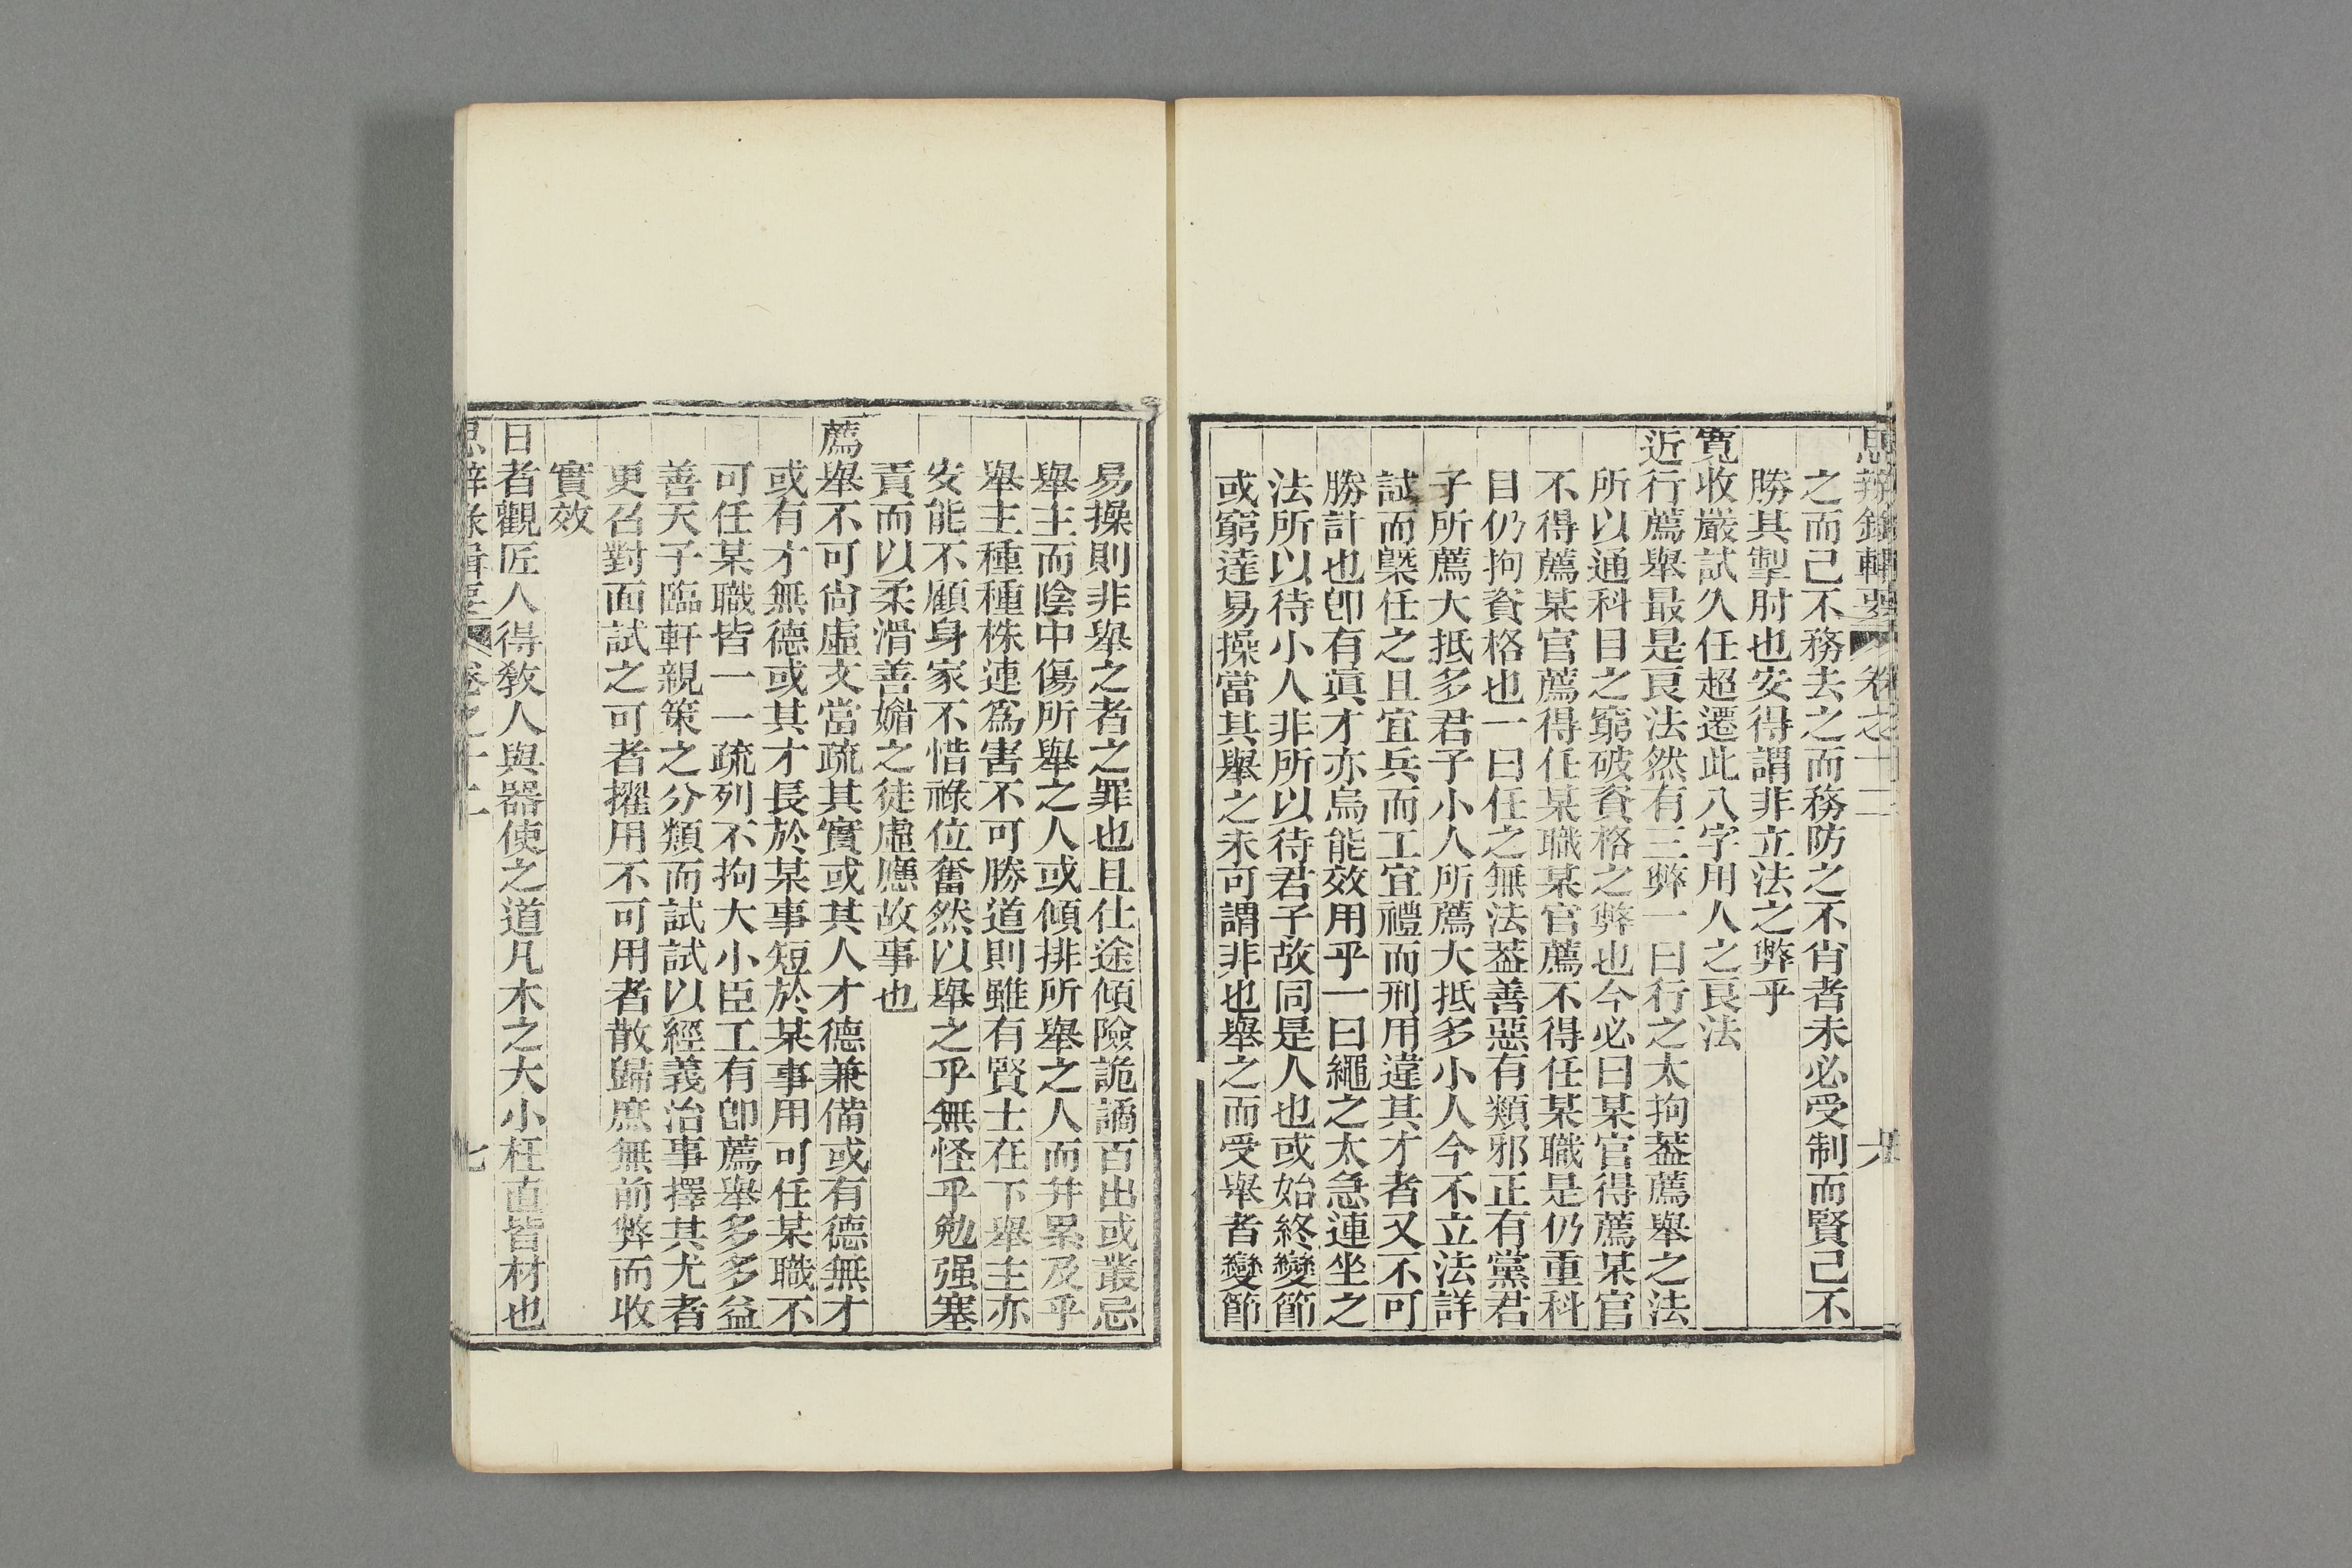 思辨錄輯要 卷之十二 六
之而己不務去之而務防之不肖者未必受制而賢己不
勝其掣肘也安得謂非立法之弊乎
寬收嚴試久任超遷此八字用人之良法
近行薦舉最是良法然有三弊一曰行之太拘葢薦舉之法
所以通科目之窮破資格之弊也今必曰某官得薦某官
不得薦某官薦得任某職某官薦不得任某職是仍重科
目仍拘資格也一曰任之無法葢善惡有類邪正有黨君
子所薦大抵多君子小人所薦大抵多小人今不立法詳
試而槩任之且宜兵而工宜禮而刑用違其才者又不可
勝計也卽有眞才亦烏能效用乎一曰繩之太急連坐之
法所以待小人非所以待君子故同是人也或始終變節
或窮達易操當其舉之未可謂非也舉之而受舉者變節
易操則非舉之者之罪也且仕途傾險詭譎百出或叢忌
舉主而陰中傷所舉之人或傾排所舉之人而幷累及乎
舉主種種株連爲害不可勝道則雖有賢士在下舉主亦
安能不顧身家不惜祿位奮然以舉之乎無怪乎勉强塞
責而以柔滑善媚之徒虛應故事也
薦舉不可尙虛文當疏其實或其人才德兼備或有德無才
或有才無德或其才長於某事短於某事用可任某職不
可任某職皆一一疏列不拘大小臣工有卽薦舉多多益
善天子臨軒親策之分類而試試以經義治事擇其尤者
更召對面試之可者擢用不可用者散歸庶無前弊而收
實效
日者觀匠人得敎人與器使之道凡木之大小枉直皆材也
思辨錄輯要 卷之十二 七